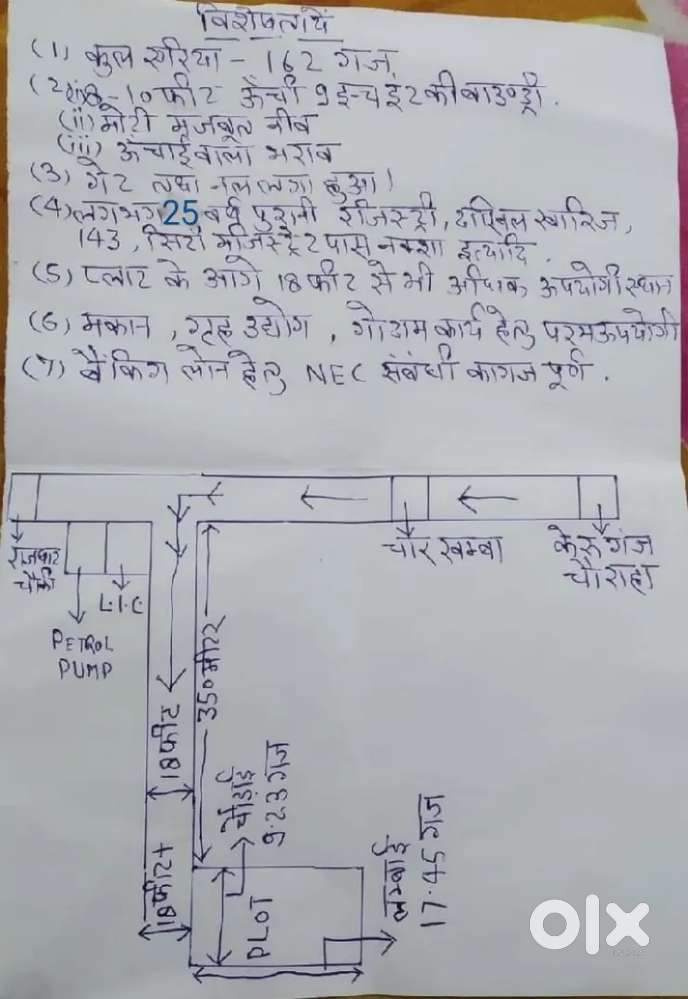 विशेषतायें
(1) कुल एरिया - 162 गज.
(2) (i) 8-10 फीट ऊँची 9 इन्च ईंट की बाउण्ड्री.
(ii) मोटी मजबूत नीव
(iii) ऊँचाई वाला भराव
(3) गेट तथा नल लगा हुआ।
(4) लगभग 25 वर्ष पुरानी रजिस्ट्री, दाखिल खारिज,
143, सिटी मजिस्ट्रेट पास नक्शा इत्यादि.
(5) प्लाट के आगे 18 फीट से भी अधिक उपयोगी स्थान
(6) मकान, गृह उद्योग, गोदाम कार्य हेतु परम उपयोगी
(7) बैंकिग लोन हेतु NEC संबंधी कागज पूर्ण.
राजघाट
चौकी
PETROL
PUMP
L.I.C.
चार खम्बा
केरु गंज
चौराहा
350 मीटर
18 फीट
18 फीट+
चौड़ाई
9.23 गज
PLOT
लम्बाई
17.45 गज
olx